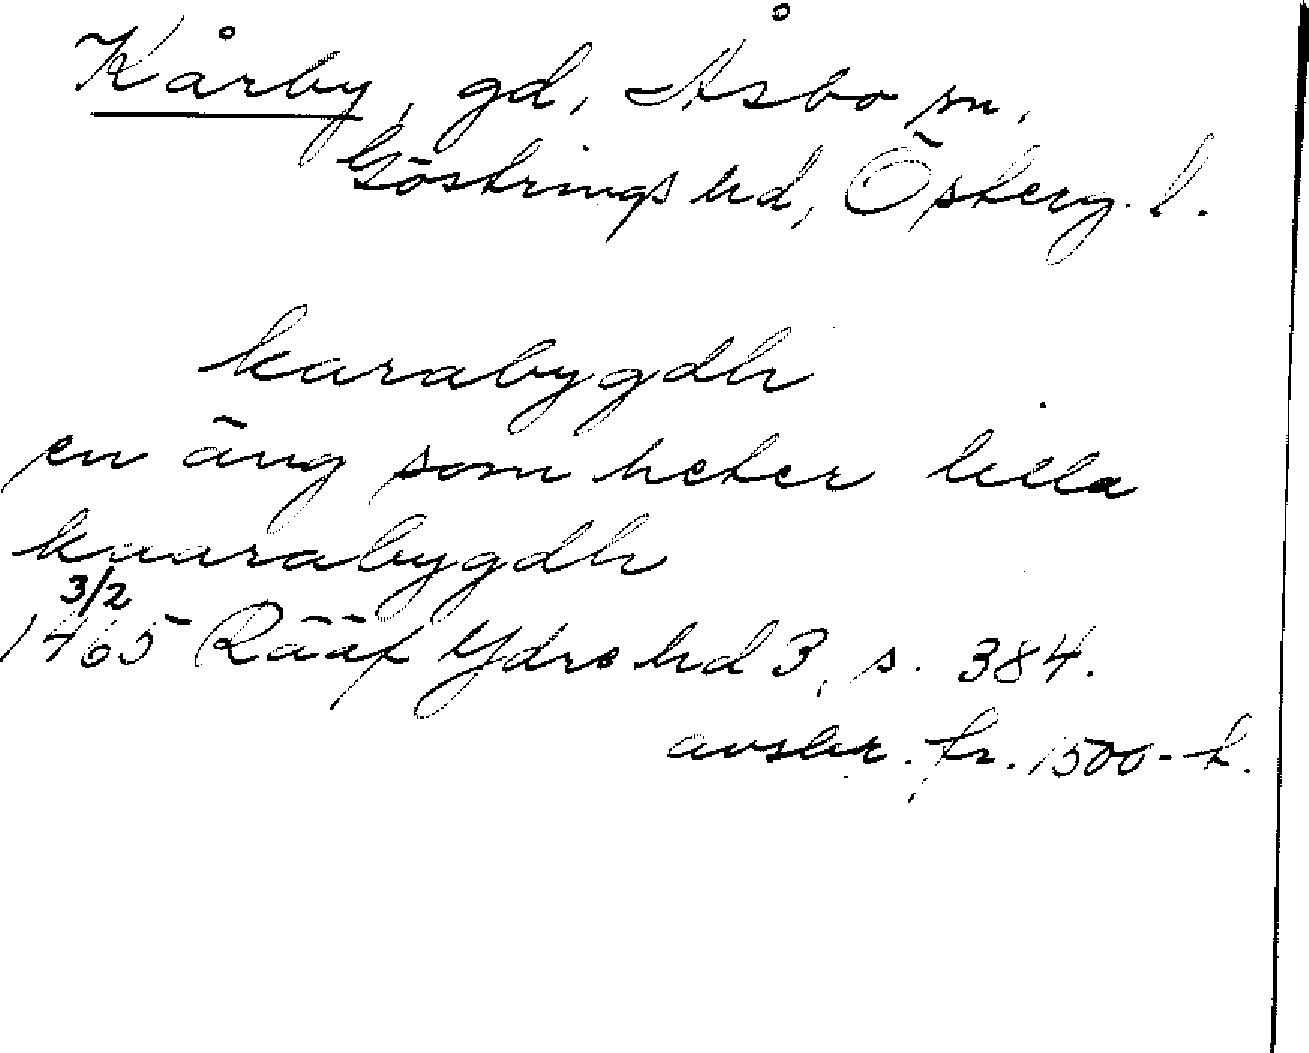 Kårby, gd, Åsbo sn,
Göstrings hd, Österg. l.
karabygdh
en äng som heter lilla
kaarabygdh
3/2
1465 Rääf Ydre hd 3, s. 384.
avskr. fr. 1500-t.